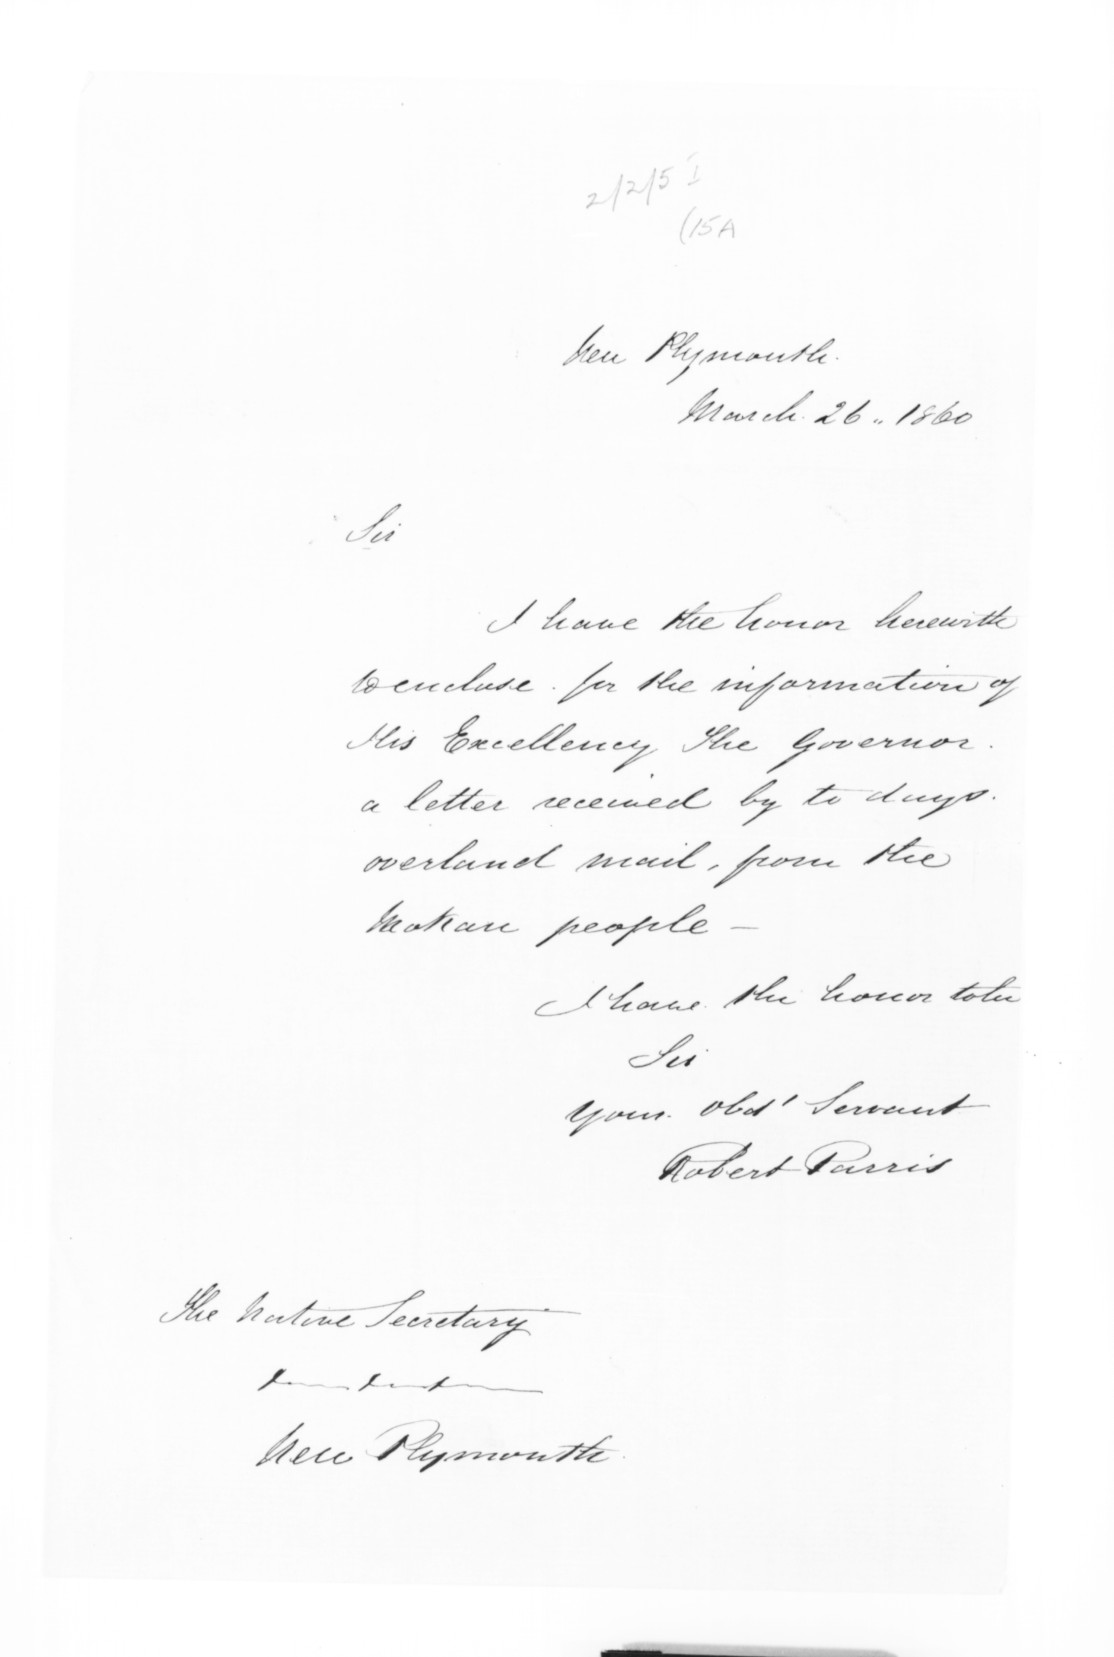 2/2/5 I
(15A
New Plymouth.
March. 26.. 1860
Sir
I have the honor herewith
to enclose. for the information of
His Excellency The Governor.
a letter received by to days.
overland mail, from the
Mokau people —
I have. the honor to be
Sir
Your. Obdt Servant
Robert Parris
The Native Secretary
New Plymouth.